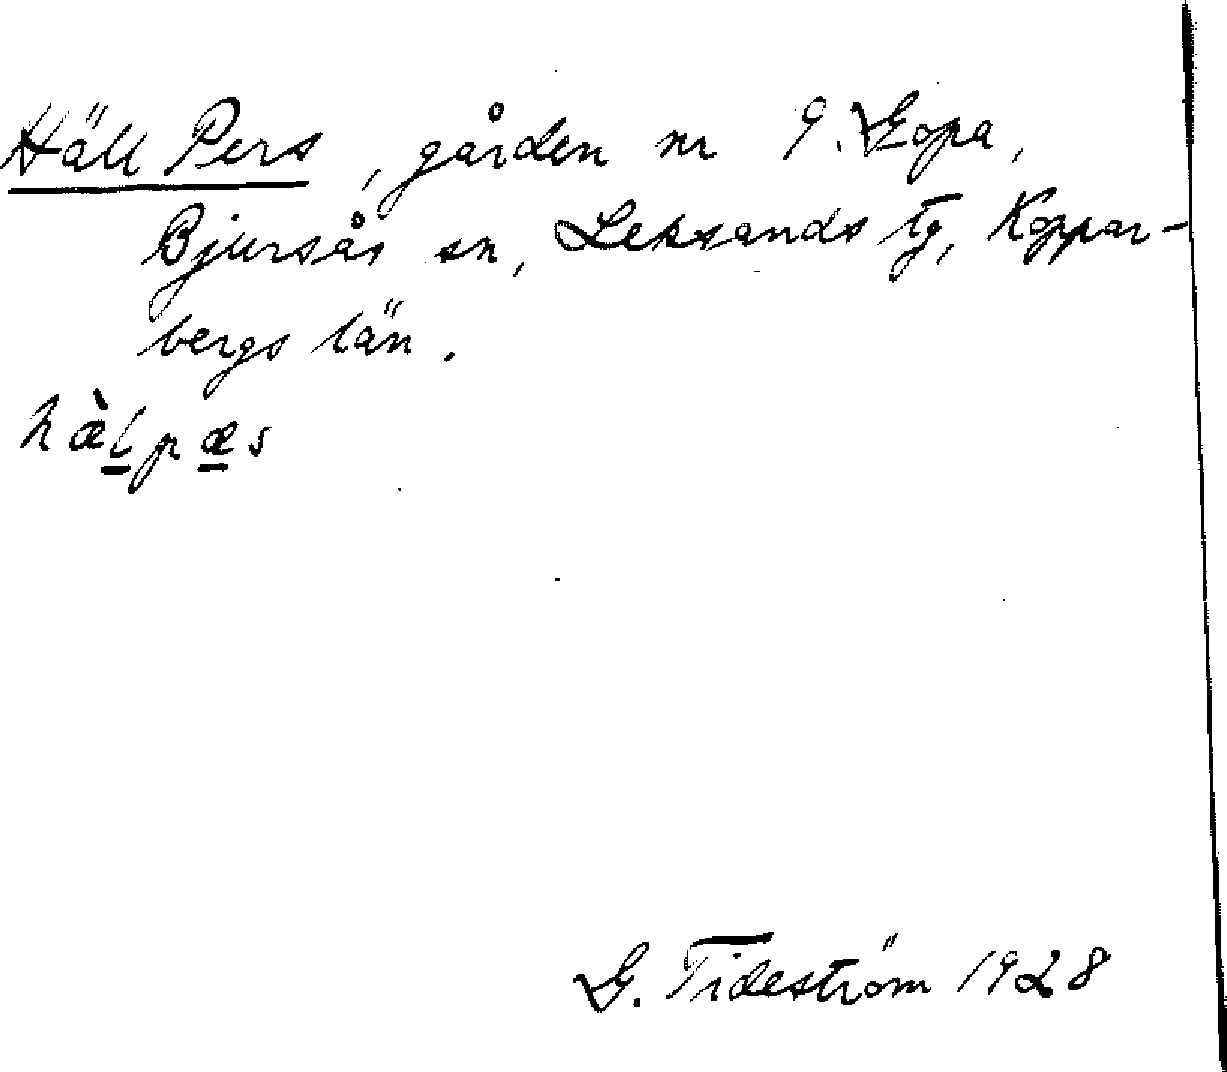 Häll Pers, gården nr 9. Gopa,
Bjursås sn, Leksands tg, Koppar-
bergs län.
hæ̀l̲pæ̲s
G. Tideström 1928